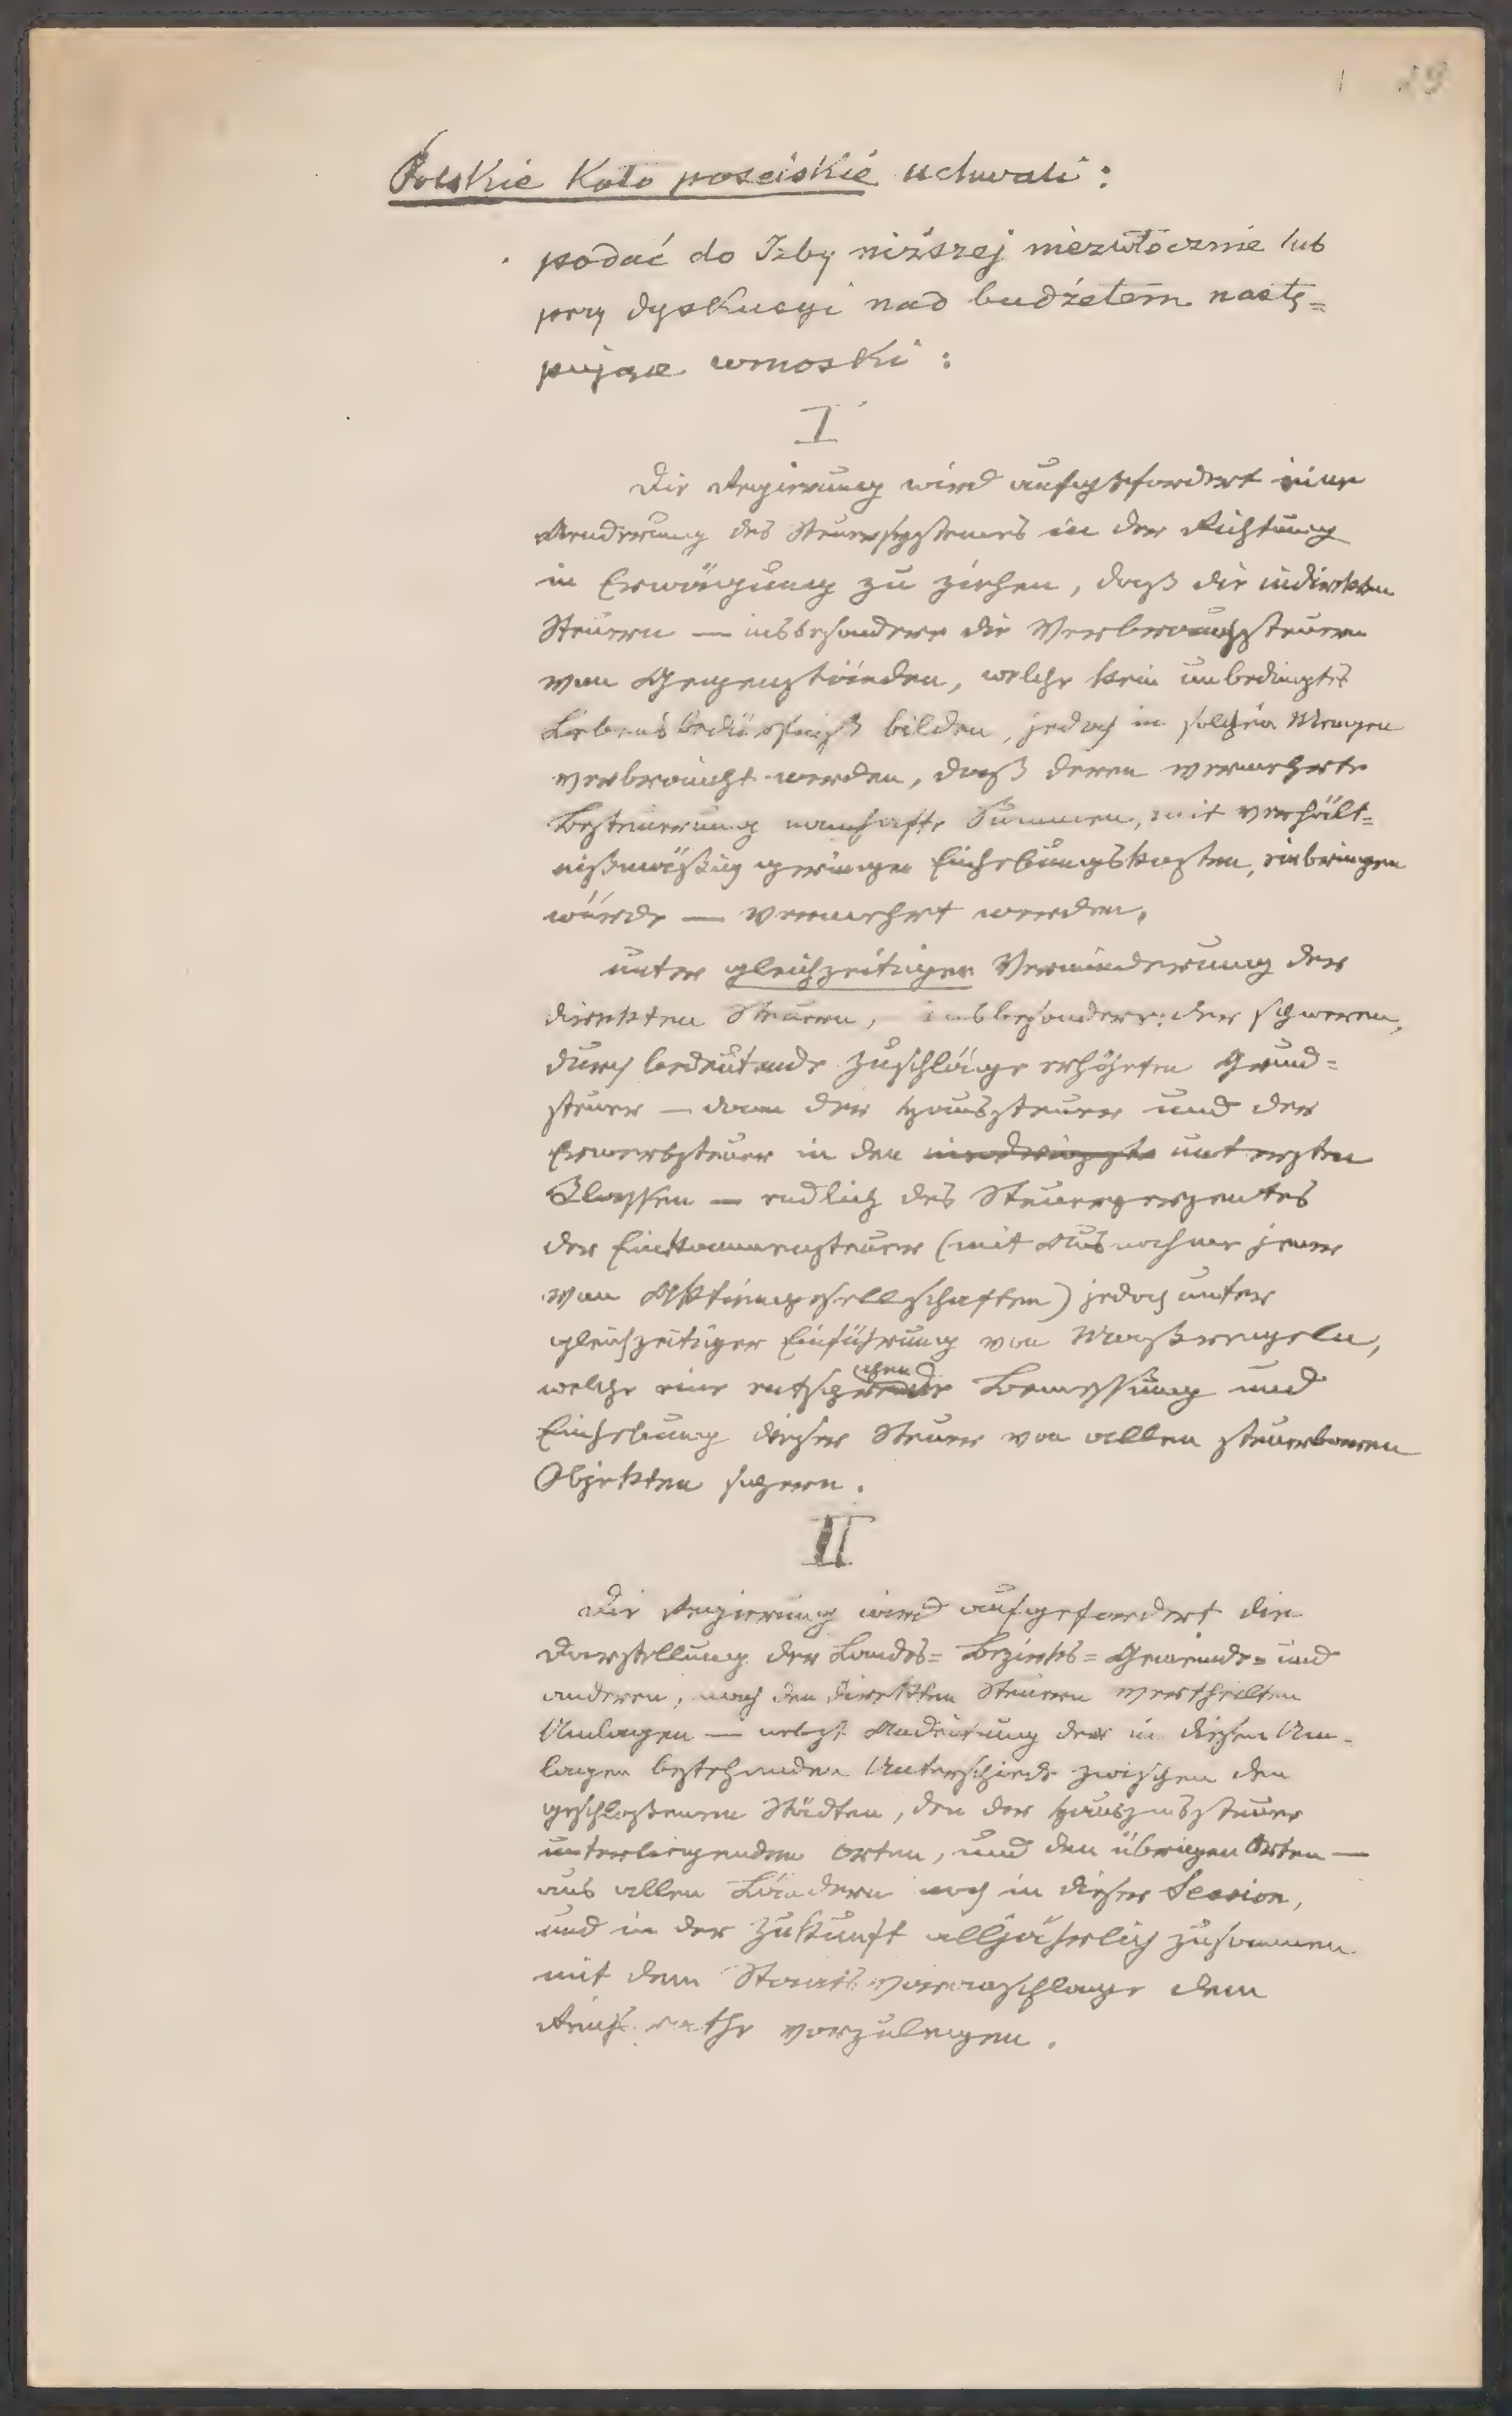 29
Polskie Koło poselskie uchwali:
podać do Izby niższej niezwłocznie lub
przy dyskusyi nad budżetem nastę=
pujące wnioski:
I
Die Regierung wird aufgefordert eine
Aenderung des Steuersystemes in der Richtung
in Erwägung zu ziehen, daß die indirekten
Steuern — insbesondere die Verbrauchssteuern
von Gegenständen, welche kein unbedingtes
Lebensbedürfniß bilden, jedoch in solchen Mengen
verbraucht werden, daß deren vermehrte
Besteuerung namhafte Summen, mit verhält=
nißmäßig geringen Einhebungskosten, einbringen
würde — vermehrt werden,
unter gleichzeitiger Verminderung der
direkten Steuern, insbesondere: der schweren,
durch bedeutende Zuschläge erhöhten Grund=
steuer — dann der Hauszsteuer und der
Erwerbsteuer in den untersten
Klassen — endlich des Steuerperzentes
der Einkommensteuer (mit Ausnahme jener
von Aktiengesellschaften) jedoch unter
gleichzeitiger Einführung von Maßregeln,
welche eine Bemessung und
Einhebung dieser Steuer von allen steuerbaren
Objekten sichern.
II
Die Regierung wird aufgefordert die
Darstellung der Landes= Bezirks= Gemeinde= und
anderen, nach den direkten Steuern vertheilten
Umlagen — nebst Andeutung der in diesen Um-
lagen bestehenden Unterschiede zwischen den
geschloßenen Städten, den der Hauszinssteuer
unterliegenden Orten, und den übrigen Orten —
aus allen Ländern noch in dieser Session,
und in der Zukunft alljährlich zusammen
mit dem Staatsvoranschlage dem
Reichsrathe vorzulegen.